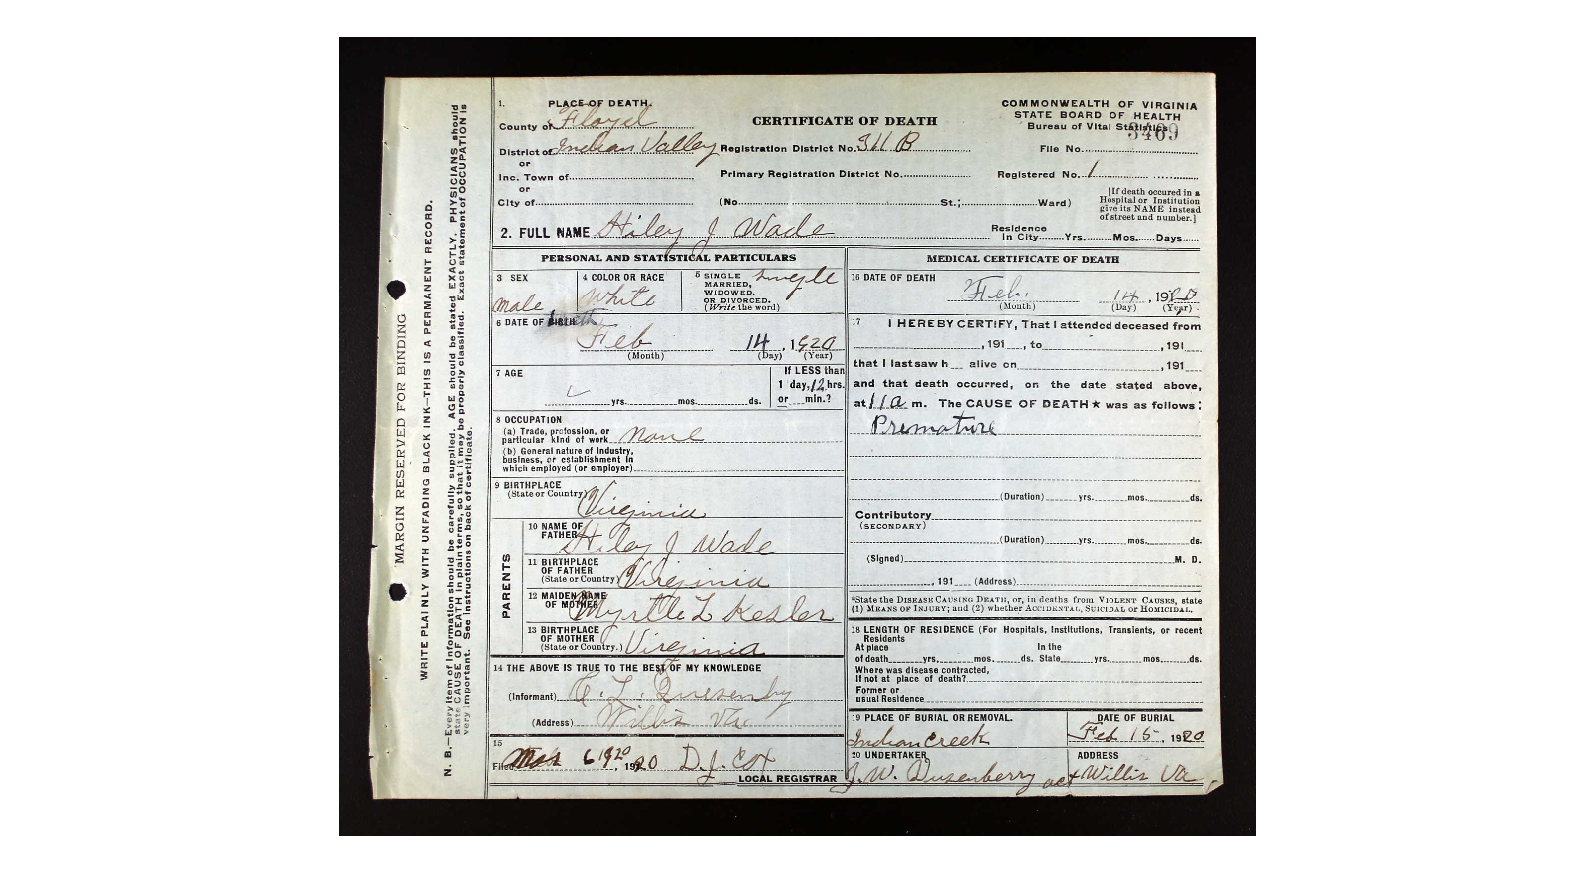 MARGIN RESERVED FOR BINDING
WRITE PLAINLY WITH UNFADING BLACK INK—THIS IS A PERMANENT RECORD.
N. B.—Every item of information should be carefully supplied. AGE should be stated EXACTLY. PHYSICIANS should
state CAUSE OF DEATH in plain terms, so that it may be properly classified. Exact statement of OCCUPATION is
very important. See instructions on back of certificate.
1. PLACE OF DEATH.
County of Floyd
District of Indian Valley
or
Inc. Town of
or
City of
CERTIFICATE OF DEATH
Registration District No. 311 B
Primary Registration District No.
(No. St.; Ward)
COMMONWEALTH OF VIRGINIA
STATE BOARD OF HEALTH
Bureau of Vital Statistics
3469
File No.
Registered No. 1
[If death occured in a
Hospital or Institution
give its NAME instead
of street and number.]
2. FULL NAME Hiley J Wade
Residence
In City Yrs. Mos. Days
PERSONAL AND STATISTICAL PARTICULARS
3 SEX
male
4 COLOR OR RACE
white
5 SINGLE
MARRIED,
WIDOWED.
OR DIVORCED.
(Write the word)
single
6 DATE OF BIRTH birth
Feb 14, 1920
(Month) (Day) (Year)
7 AGE
yrs. mos. ds.
If LESS than
1 day, 12 hrs.
or min.?
8 OCCUPATION
(a) Trade, profession, or
particular kind of work none
(b) General nature of Industry,
business, or establishment in
which employed (or employer)
9 BIRTHPLACE
(State or Country) Virginia
PARENTS
10 NAME OF
FATHER Hiley J Wade
11 BIRTHPLACE
OF FATHER
(State or Country) Virginia
12 MAIDEN NAME
OF MOTHER Myrtle L Kesler
13 BIRTHPLACE
OF MOTHER
(State or Country.) Virginia
14 THE ABOVE IS TRUE TO THE BEST OF MY KNOWLEDGE
(Informant)
(Address) Willis Va
15
Filed Mar 6 1920, 1920 D. J. Cox
LOCAL REGISTRAR
MEDICAL CERTIFICATE OF DEATH
16 DATE OF DEATH
Feb. 14, 1920
(Month) (Day) (Year)
17 I HEREBY CERTIFY, That I attended deceased from
, 191 , to , 191
that I last saw h alive on , 191
and that death occurred, on the date stated above,
at 11 a m. The CAUSE OF DEATH★ was as follows:
Premature
(Duration) yrs. mos. ds.
Contributory
(SECONDARY)
(Duration) yrs. mos. ds.
(Signed) M. D.
, 191 (Address)
*State the DISEASE CAUSING DEATH, or, in deaths from VIOLENT CAUSES, state
(1) MEANS OF INJURY; and (2) whether ACCIDENTAL, SUICIDAL or HOMICIDAL.
18 LENGTH OF RESIDENCE (For Hospitals, Institutions, Transients, or recent
Residents
At place In the
of death yrs. mos. ds. State yrs. mos. ds.
Where was disease contracted,
If not at place of death?
Former or
usual Residence
19 PLACE OF BURIAL OR REMOVAL.
Indian Creek
DATE OF BURIAL
Feb 15, 1920
20 UNDERTAKER
J. W. Dusenberry act
ADDRESS
Willis Va